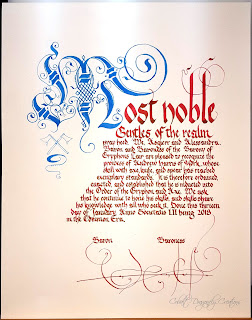 Most noble
Gentles of the realm
pray heed. We, Asgeirr and Alessandra,
Baron and Baroness of the Barony of
Gryphon's Lair are pleased to recognize the
prowess of Andrew harris of York, whose
skill with axe, knife, and spear has reached
exemplary standards. It is therefore ordained,
enacted, and established that he is inducted into
the Order of the Gryphon and Axe. We ask
that he continue to hone his skills, and share
his knowledge with all who seek it. Done this
day of January, Anno Societatis LII being 2018
in the Common Era.
Baron Baroness